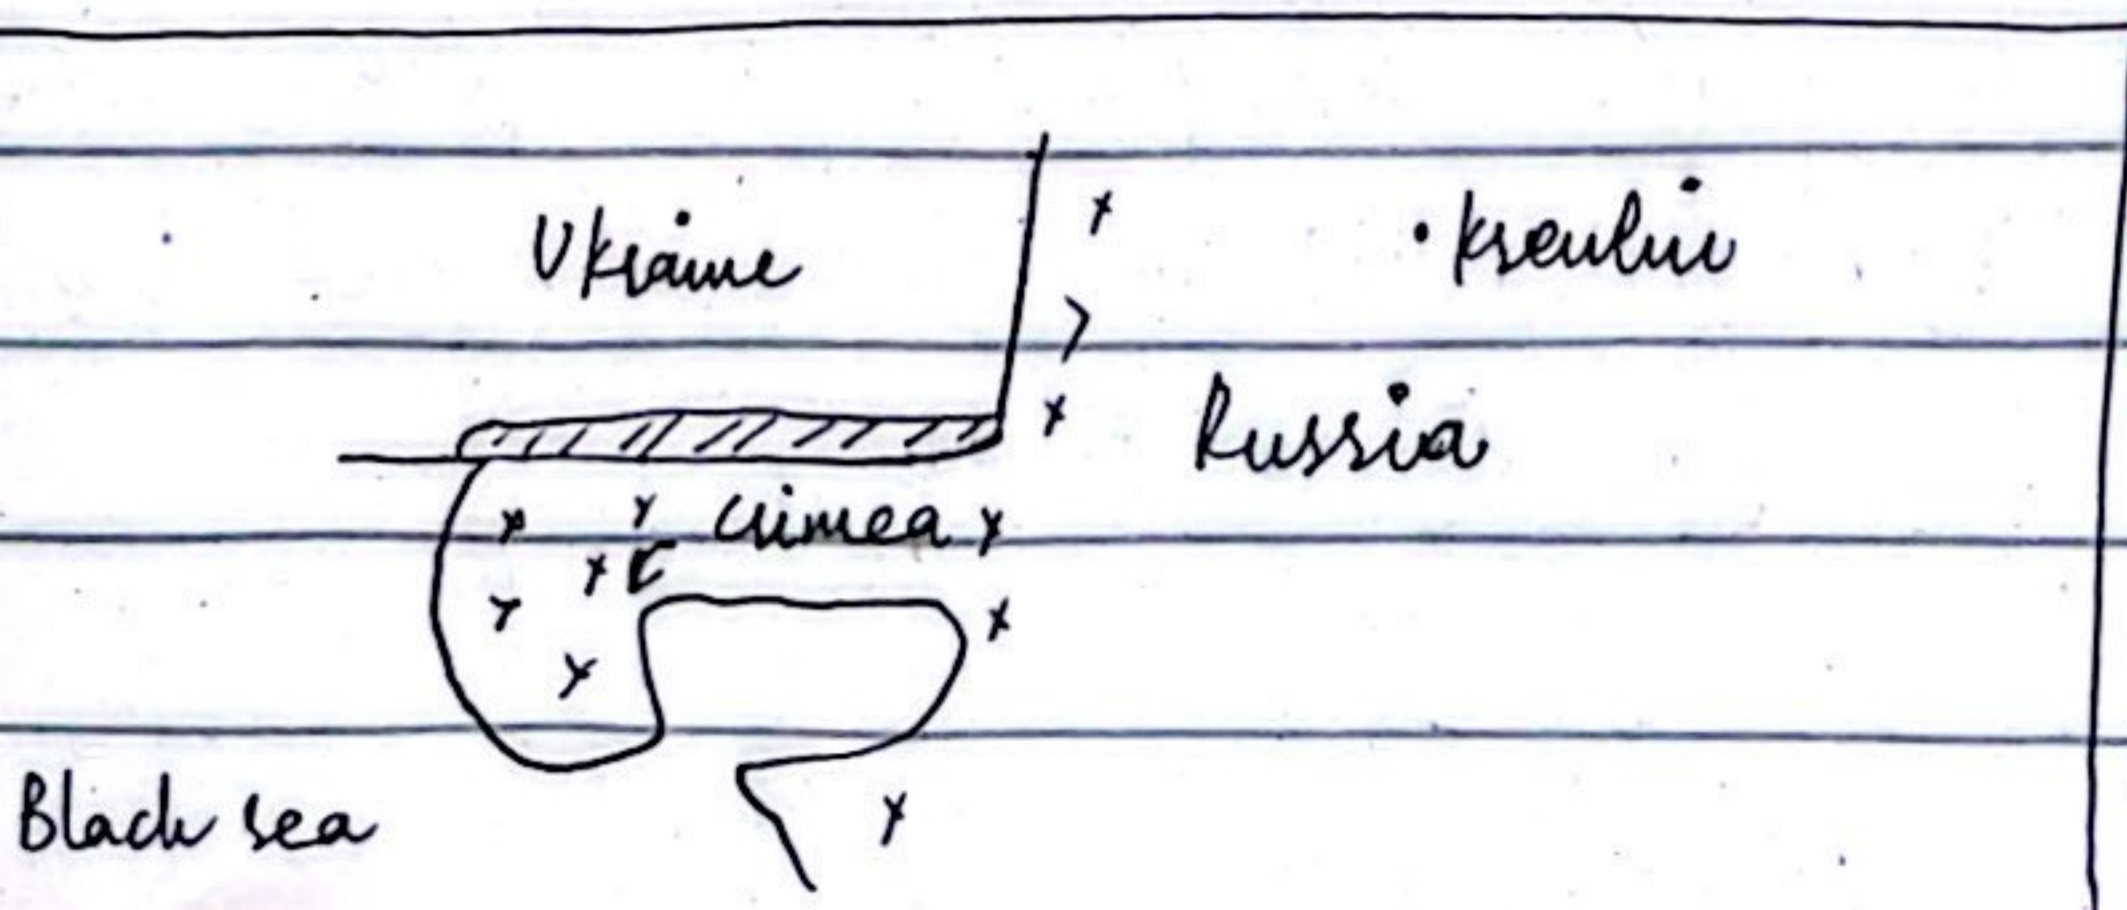 Ukraine
• Kremlin
Russia
Crimea
Black sea